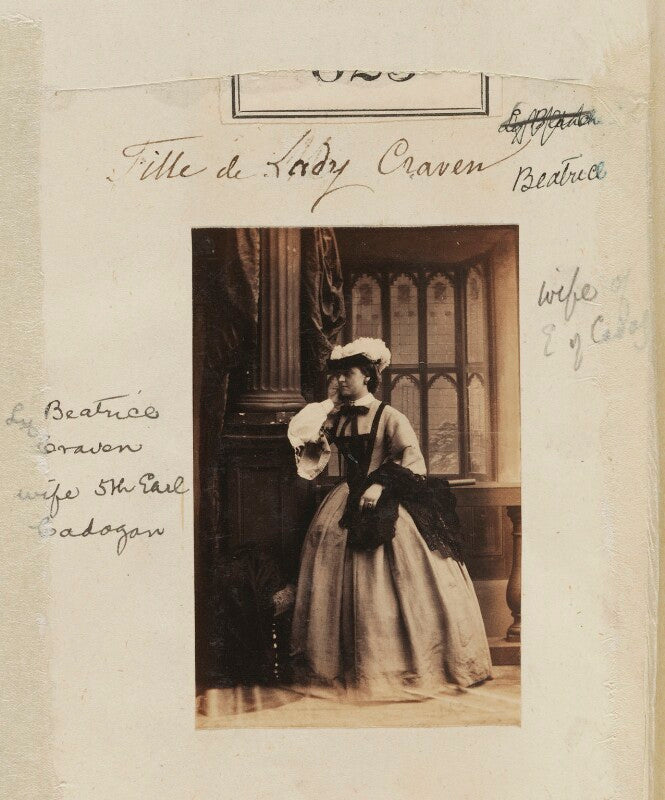 Fille de Lady Craven
Beatrice
wife of
E of
Beatrice
Craven
wife 5th Earl
Cadogan